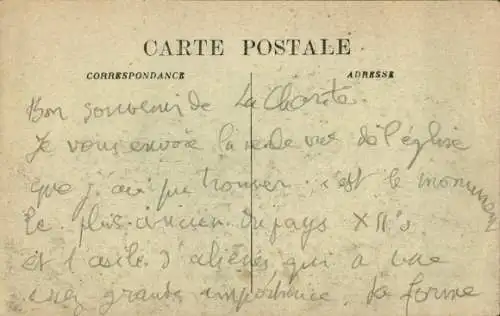 CARTE POSTALE
CORRESPONDANCE
ADRESSE
Bon souvenir de La Charité.
Je vous envoie la seule vue de l'église
que j'ai pu trouver. c'est le monument
le plus ancien du pays XIIs
et l'asile d'aliénés qui a une
assez grande importance. La forme